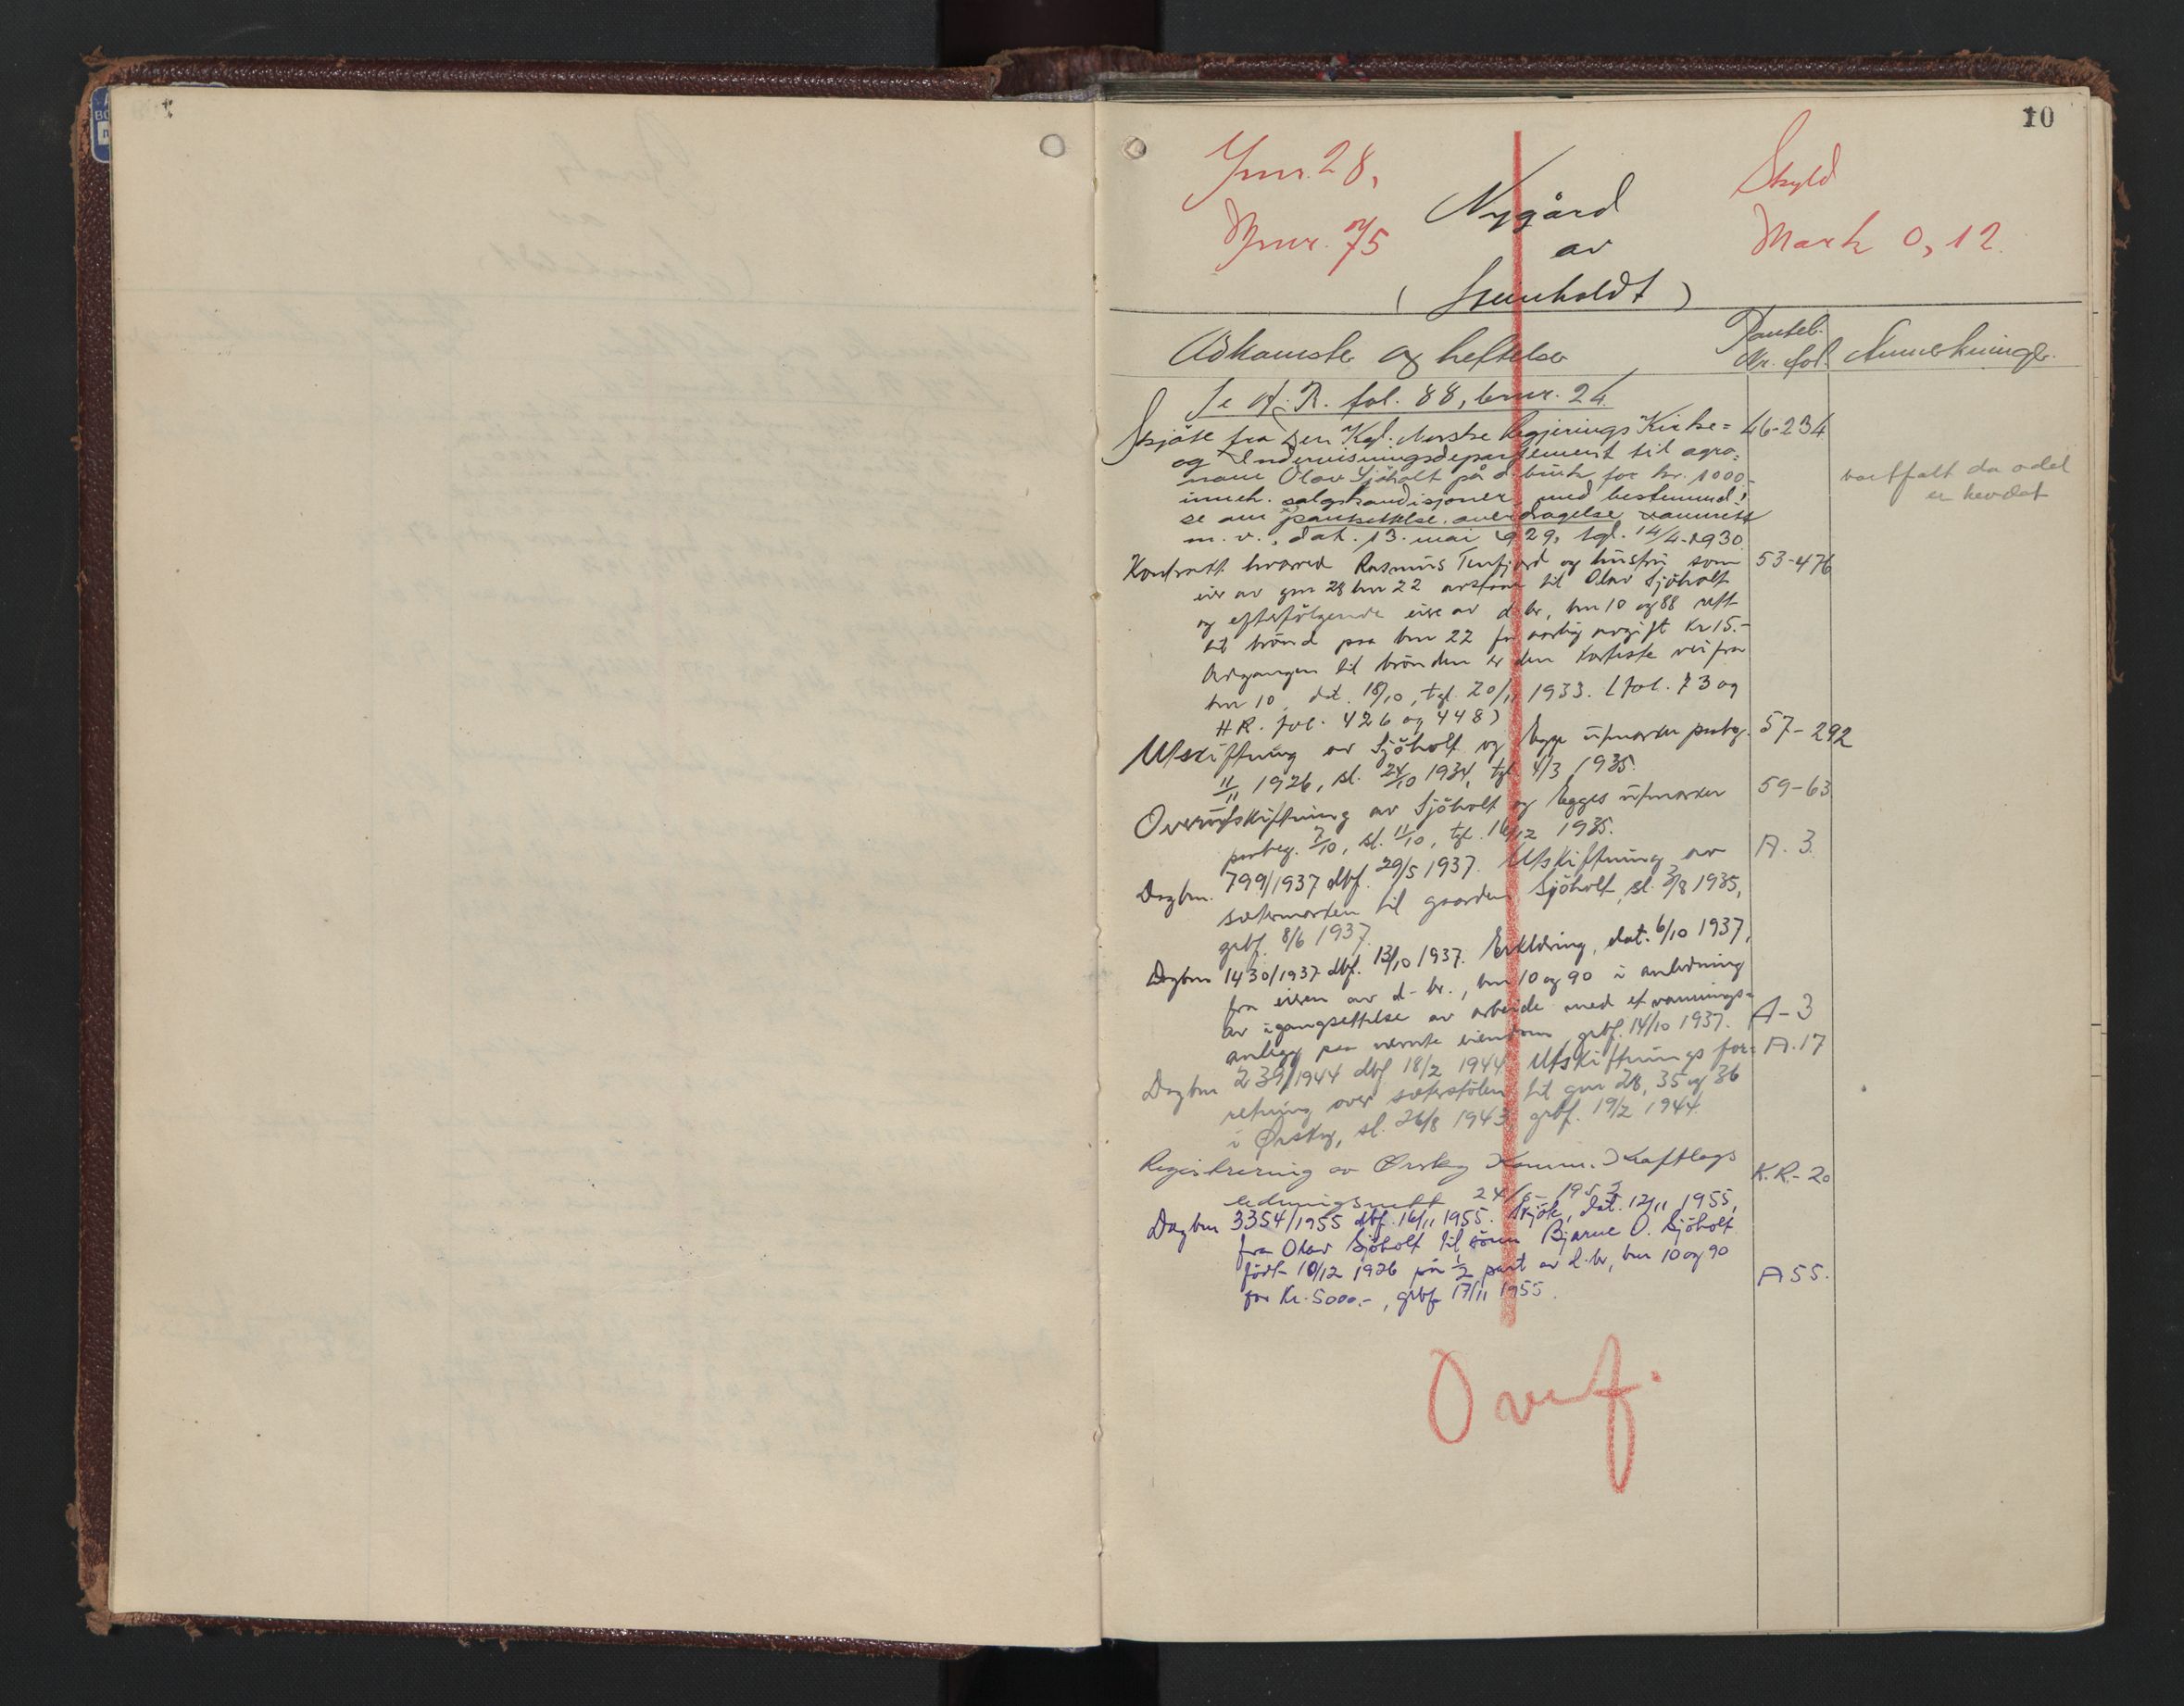 10
Gnr. 28,
Bnr. 75
Nygård
av
( )
Skyld
Mark 0,12.
Adkomster og heftelser
Panteb.
Nr. fol.
Anmerkninger
Se A. R. fol. 88, bnr. 24.
Skjøte fra den Kgl. Norske Regjerings Kirke= 46-234
og Undervisningsdepartement til agro=
nom Olav Sjöholt på d. bruk for kr. 1000.-
inneh. salgskondisjoner med bestemmel=
se om pantsettelse, overdragelse vannrett
m. v., dat. 13. mai 1929, tgl. 14/4-1930
bortfalt da odel
er hevdet
Kontrakt hvorved Rasmus Tenfjord og hustru som 53-476
eier av gnr 28 bnr 22 avstaar til Olav Sjöholt
og efterfølgende eiere av d. br., bnr 10 og 88 rett
til brönd paa bnr 22 for aarlig avgift kr 15.-
Adgangen til brönden er den korteste vei fra
bnr 10, dat. 18/10, tgl. 20/11 1933. (fol. 73 og
H R. fol. 426 og 448)
Utskiftning av Sjöholt og Egge utmarker paabeg. 57-292
11/11 1926, sl. 24/10 1934, tgl. 4/3 1935.
Overutskiftning av Sjöholt og Egges utmarker 59-63
paabeg. 7/10, sl. 11/10, tgl. 16/12 1935.
Dagbnr. 799/1937 dbf. 29/5 1937. Utskiftning av A. 3.
sætermarken til gaarden Sjöholt, sl. 3/8 1935,
grbf. 8/6 1937.
Dagbnr 1430/1937 dbf. 13/10 1937. Erklæring, dat. 6/10 1937,
fra eieren av d. br., bnr 10 og 90 i anledning
av igangsettelse av arbeide med et vannings=
anlegg paa nevnte eiendom, grbf. 14/10 1937. A-3
Dagbnr 239/1944 dbf 18/2 1944. Utskiftnings for= A.17
retning over sæterstölen til gnr 28, 35 og 36
i Ørskog, sl. 26/8 1943, grbf. 19/2 1944.
Registrering av Ørskog Komm. Kraftlags K.R.-20
ledningsnett
Dagbnr 3354/1955 dbf. 16/11 1955. Skjöte, dat. 12/11 1955,
fra Olav Sjöholt til sönn Bjarne O. Sjöholt
födt 10/12 1926 på 1/2 part av d. br, bnr 10 og 90
for Kr. 5000.-, grbf 17/11 1955. A 55.
Overf.